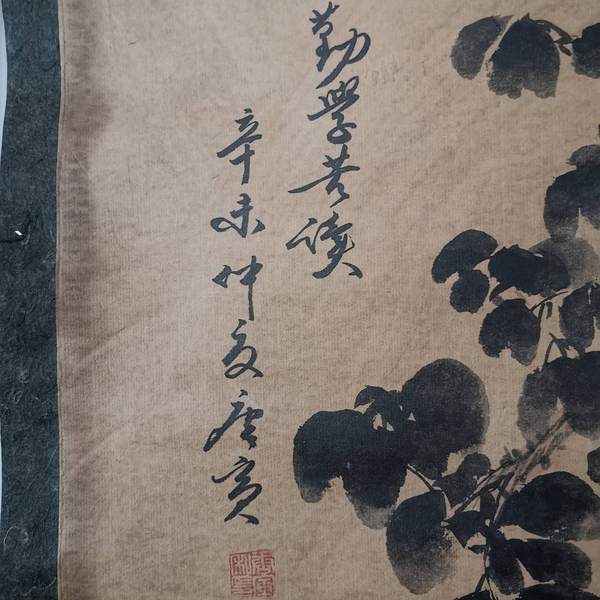 勤學苦讀
辛未仲夏唐寅